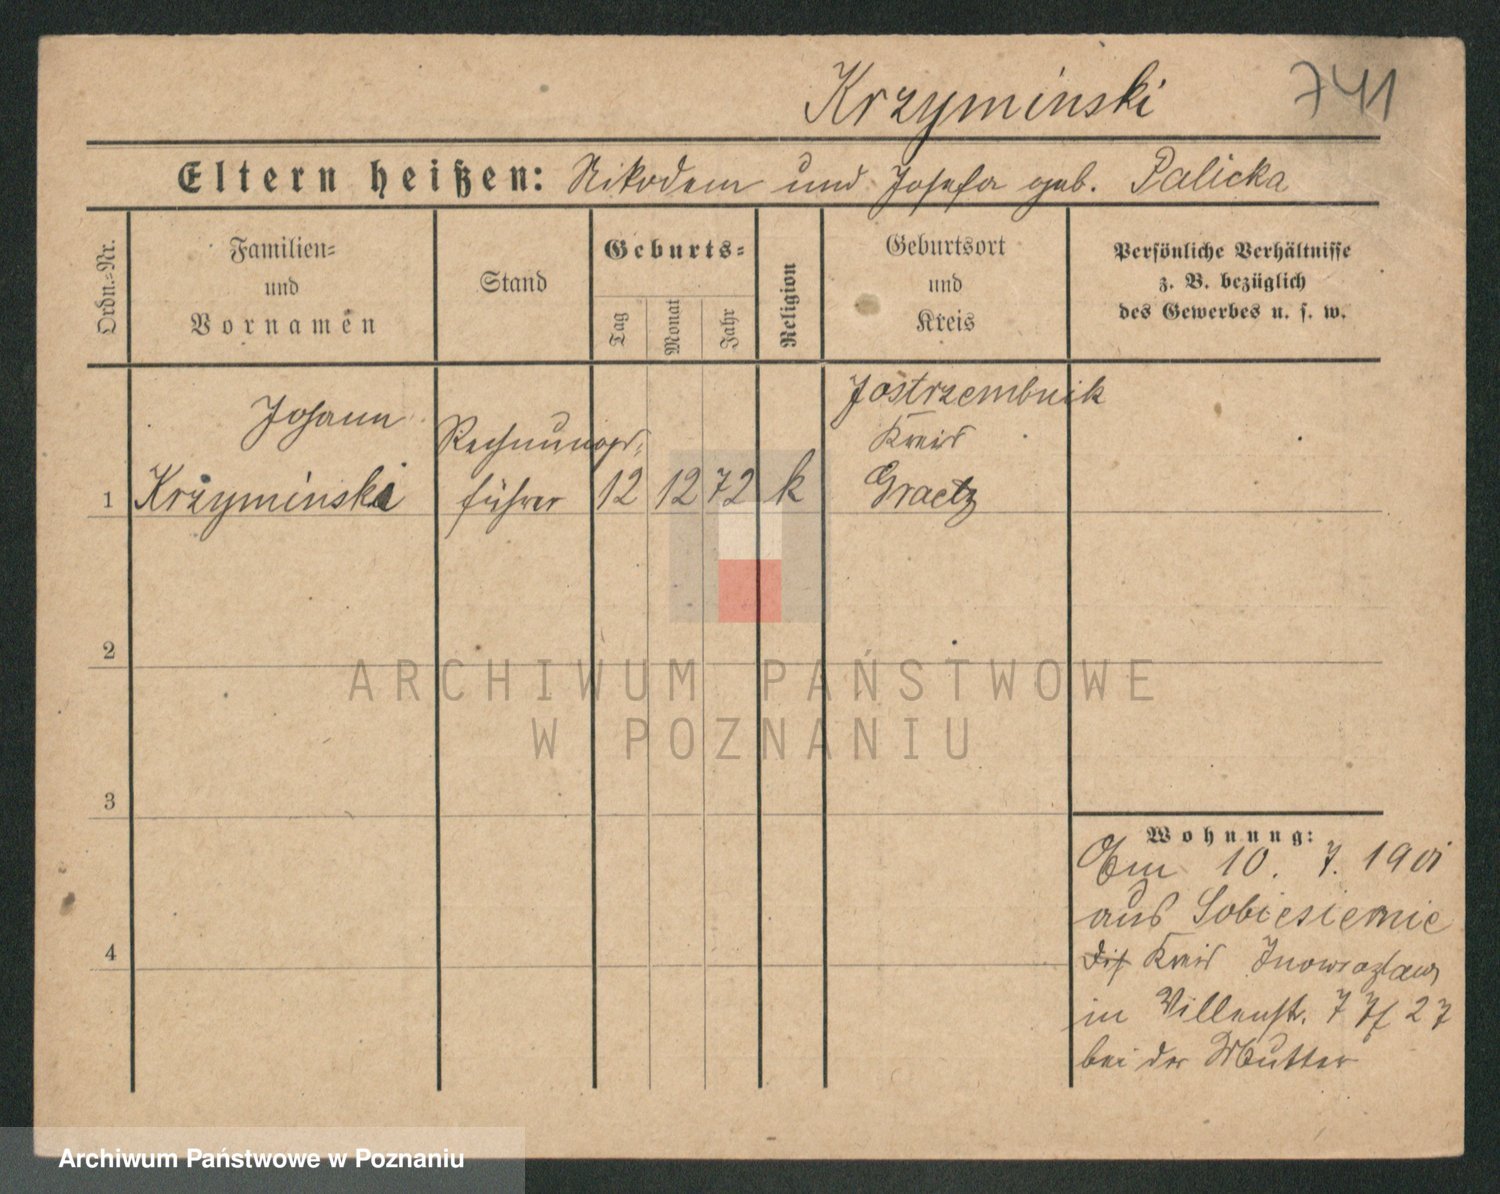 Krzyminski 741
Eltern heißen: Nikodem und Josefa geb. Palicka
Ordn.=Nr.
Familien=
und
Vornamen
Stand
Geburts=
Tag
Monat
Jahr
Religion
Geburtsort
und
Kreis
Persönliche Verhältnisse
z. B. bezüglich
des Gewerbes u. s. w.
1
Johann
Krzyminski
Rechnungs-
führer
12 12 72 k
Jastrzembnik
Kreis
Graetz
2
3
4
Wohnung:
Am 10. 7. 1901
aus
Kreis Inowrazlaw
in Villenstr. 7
bei der Mutter
ARCHIWUM PAŃSTWOWE
W POZNANIU
Archiwum Państwowe w Poznaniu